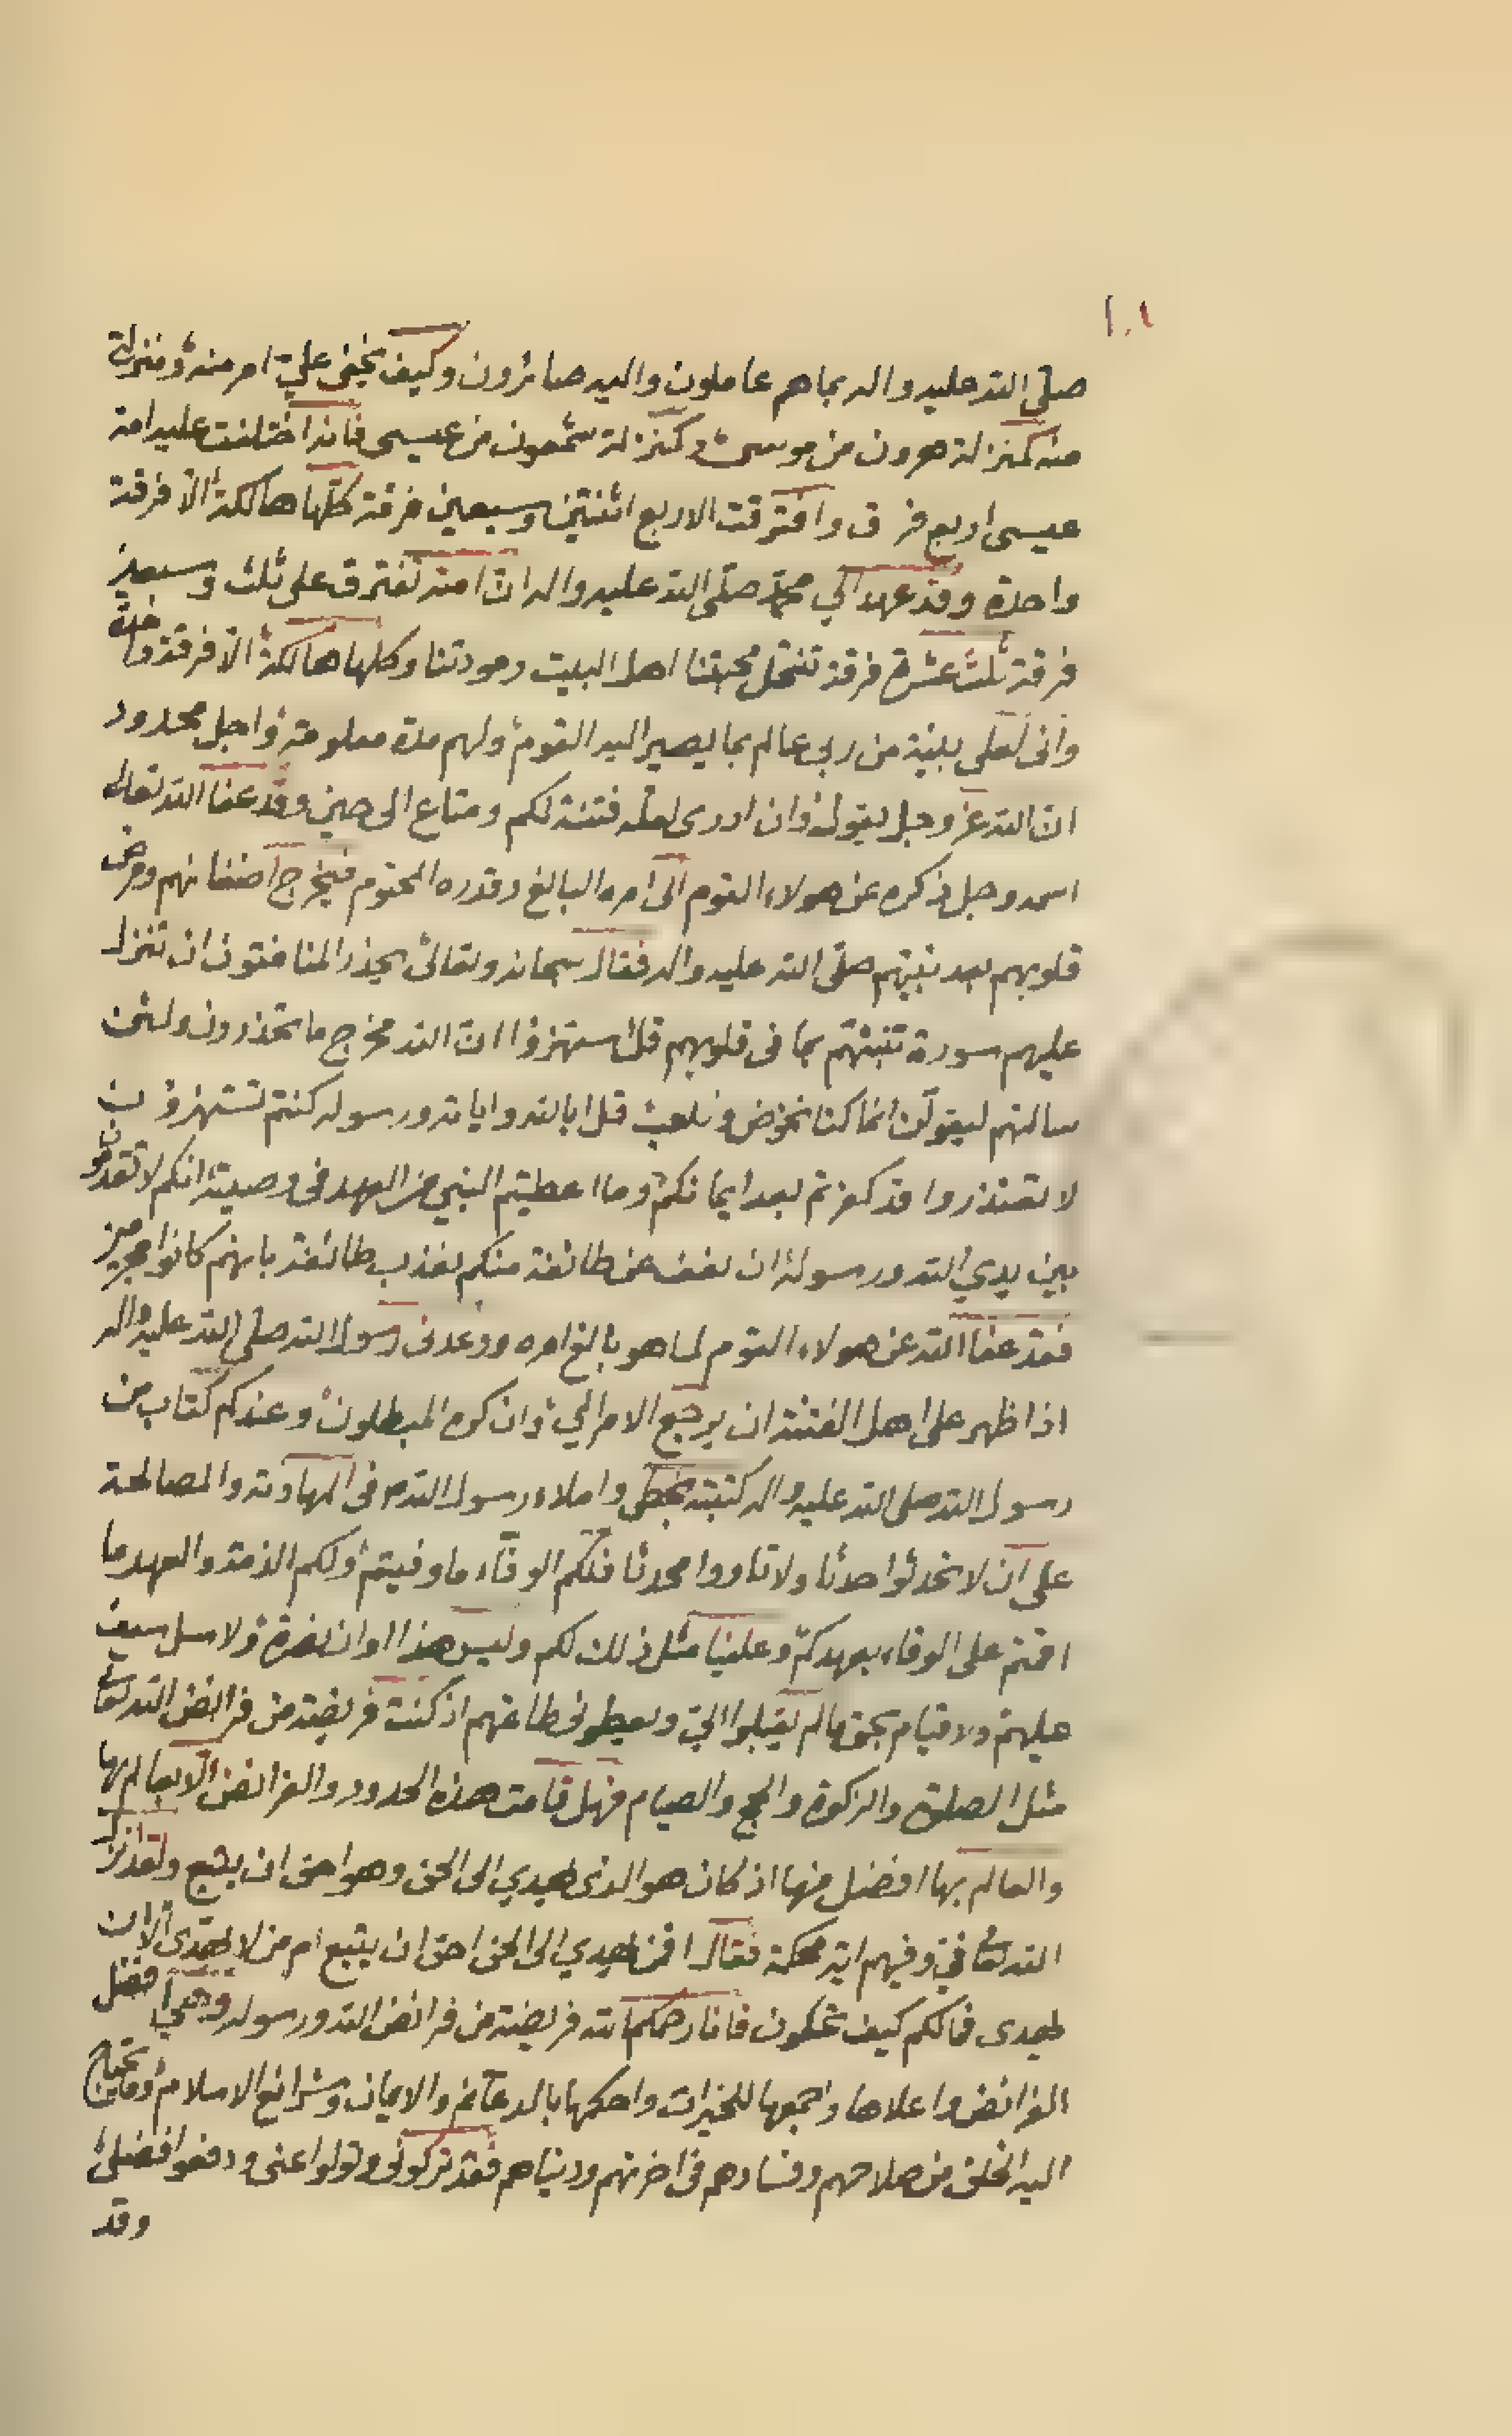 صلى الله عليه واله بما هم عاملون واليه صائرون وكيف يخفى علي امر منه ومنزلتي
منه كمنزلة هرون من موسى وكمنزلة شمعون من عيسى فانه اختلفت عليه امة
عيسى اربع فرق وافترقت الاربع اثنتين وسبعين فرقة كلها هالكة الا فرقة
واحدة وقد عهد الي محمد صلى الله عليه واله ان امته تفترق على ثلث وسبعين
فرقة ثلث عشرة فرقة تنتحل محبتنا اهل البيت ومودتنا وكلها هالكة الا فرقة واحدة
وانى لعلى بينة من ربي عالم بما يصير اليه القوم ولهم مدة معلومة واجل محدود
ان الله عز وجل يقول وان ادرى لعله فتنة لكم ومتاع الى حين وقد عفا الله تعالى
اسمه وجل ذكره عن هولاء القوم الى امره البالغ وقدره المحتوم فيخرج اضغانهم ومرض
قلوبهم بعد نبيهم صلى الله عليه واله فقال سبحانه وتعالى يحذر المنافقون ان تنزل
عليهم سورة تنبئهم بما فى قلوبهم قل استهزؤا ان الله مخرج ما تحذرون ولئن
سالتهم ليقولن انما كنا نخوض ونلعب قل ابالله واياته ورسوله كنتم تستهزؤن
لا تعتذروا قد كفرتم بعد ايمانكم وما اعطيتم النبي من العهد فى وصيته انكم لا تقدمون
بين يدي الله ورسوله ان نعف عن طائفة منكم نعذب طائفة بانهم كانوا مجرمين
فقد عفا الله عن هولاء القوم لما هو بالغ امره ووعدنى رسول الله صلى الله عليه واله
اذا ظهر على اهل الفتنة ان يرجع الامر الي وان كره المبطلون وعندكم كتاب من
رسول الله صلى الله عليه واله كتبته بخطى واملاء رسول الله ص فى المهاونة والمصالحة
على ان لا تحدثوا حدثا ولا تاووا محدثا فلكم الوفاء ما وفيتم ولكم الذمة والعهد ما
اقمتم على الوفاء بعهدكم وعلينا مثل ذلك لكم وليس هذا اوان نصرة ولا سل سيف
عليهم ولا قيام بحق ما لم يقبلوا الي ويعطونى طاعتهم اذ كنت فريضة من فرائض الله تعالى
مثل الصلوة والزكوة والحج والصيام فهل قامت هذه الحدود والفرائض الا بعالم بها
والعالم بها افضل منها اذ كان هو الذى يهدي الى الحق وهو احق ان يتبع ولقد انزل
الله تعالى في وفيهم اية محكمة فقال افمن يهدي الى الحق احق ان يتبع ام من لا يهدى الا ان
يهدى فمالكم كيف تحكمون فانا رحمكم الله فريضة من فرائض الله ورسوله وهى افضل
الفرائض واعلاها واجمعها للخيرات واحكمها بالدعائم والايمان وشرائع الاسلام وما يحتاج
اليه الخلق من صلاحهم وفسادهم فى اخرتهم ودنياهم فقد تركونى وتولوا عنى ودفعوا فضلى
وقد